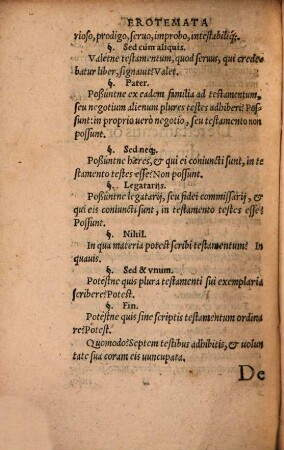 EROTEMATA
rioso, prodigo, seruo, improbo, intestabiliq́;.
§. Sed cùm aliquis.
Valetne testamentum, quod seruus, qui crede
batur liber, signauit? Valet.
§. Pater.
Poßuntne ex eadem familia ad testamentum,
seu negotium alienum plures testes adhiberi? Pos
sunt: in proprio verò negotio, seu testamento non
possunt.
§. Sed neq;.
Poßuntne hæres, & qui ei coniuncti sunt, in te
stamento testes esse? Non possunt.
§. Legatarijs.
Poßuntne legatarij, seu fidei commissarij, &
qui eis coniuncti sunt, in testamento testes esse?
Possunt.
§. Nihil.
In qua materia potest scribi testamentum? In
quauis.
§. Sed & vnum.
Potestne quis plura testamenti sui exemplaria
scribere? Potest.
§. Fin.
Potestne quis sine scriptis testamentum ordina
re? Potest.
Quomodo? Septem testibus adhibitis, & volun
tate sua coram eis nuncupata.
De